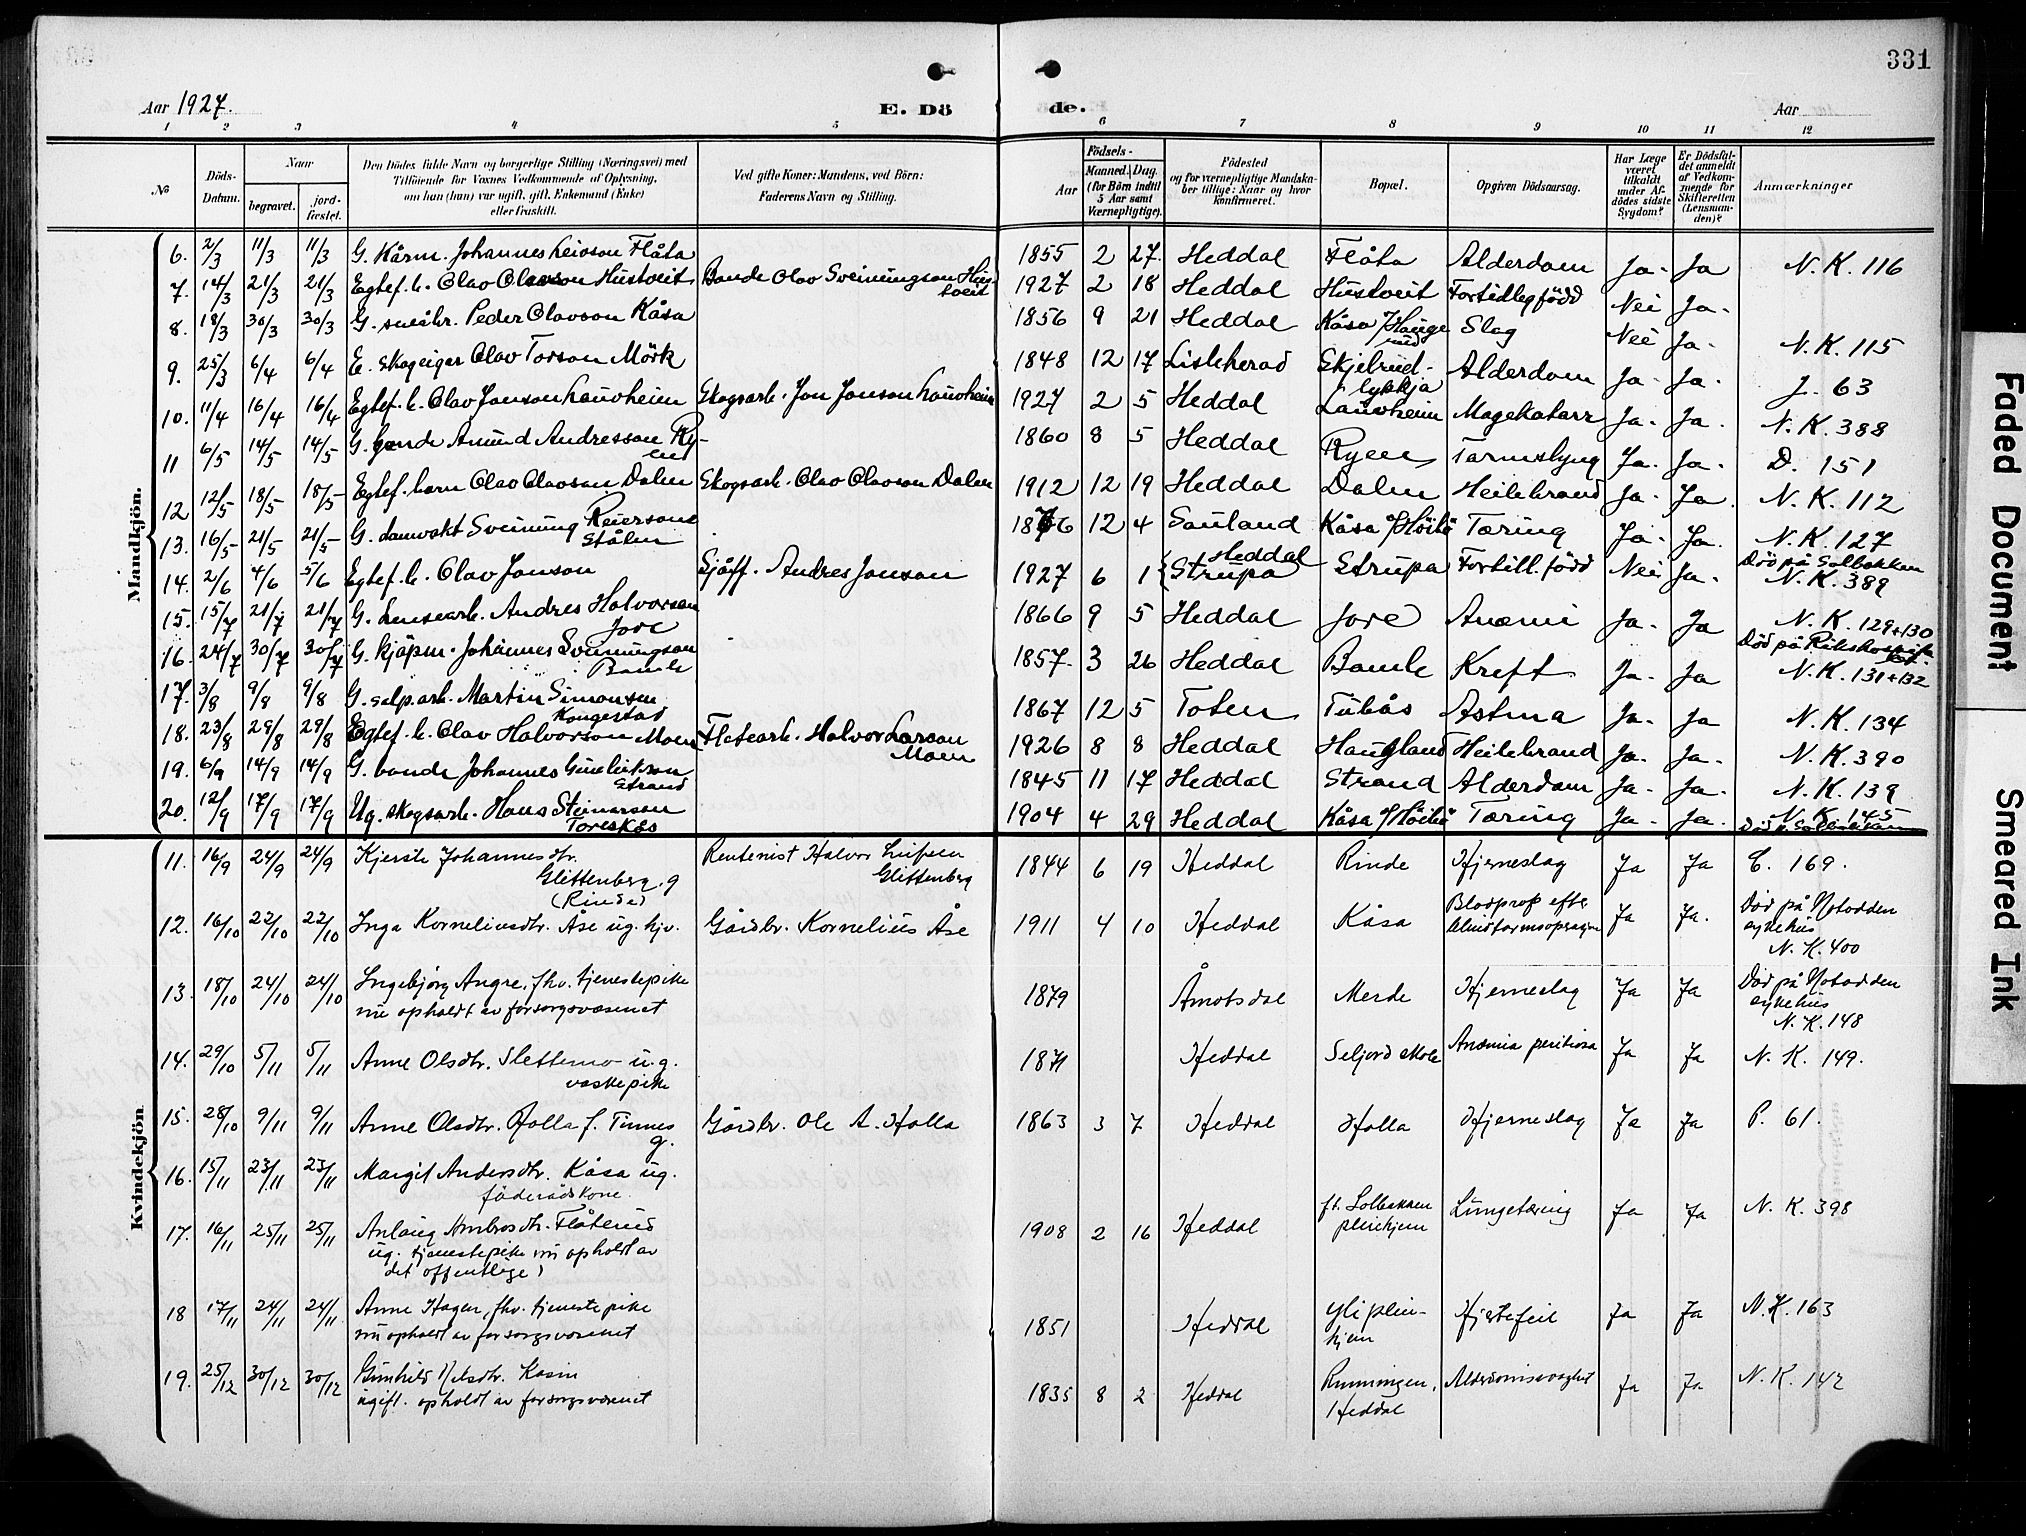 331
Aar 1927.
E. Dö de.
Aar
1 2 3 4 5 6 7 8 9 10 11 12
№
Döds-Datum.
Naar
begravet.
jord-fæstet.
Den Dödes fulde Navn og borgerlige Stilling (Næringsvei) med
Tilföiende for Voxnes Vedkommende af Oplysning,
om han (hun) var ugift, gift, Enkemand (Enke)
eller fraskilt.
Ved gifte Koner: Mandens, ved Börn:
Faderens Navn og Stilling.
Födsels-
Aar
Maaned. Dag.
(for Börn indtil
5 Aar samt
Værnepligtige).
Födested
og for værnepligtige Mandska-
ber tillige: Naar og hvor
konfirmeret.
Bopæl.
Opgiven Dödsaarsag.
Har Læge
været
tilkaldt
under Af-
dödes sidste
Sygdom?
Er Dödsfal-
det anmeldt
af Vedkom-
mende for
Skifteretten
(Lensman-
den)?
Anmærkninger
Mandkjön.
6. 2/3 11/3 11/3 G. Kårm. Johannes Leivson Flåta 1855 2 27. Heddal Flåta Alderdom Ja- Ja N.K. 116
7. 14/3 21/3 21/3 Egtef. b. Olav Olavson Hustveit Bonde Olav Sveinungson Hustveit 1927 2 18 Heddal Hustveit Fortidleg född Nei Ja-
8. 18/3 30/3 30/3 G. småbr. Peder Olavson Kåsa 1856 9 21 Heddal Kåsa Slag Nei Ja- N.K. 115
9. 25/3 6/4 6/4 E. Skogeigar Olav Torson Mörk 1848 12 17 Lisleherad Skjelrud-lykkja Alderdom Ja- Ja- J. 63
10. 11/4 16/4 16/4 Egtef. b. Olav Jonson Lauvheim Skogsarb. Jon Jonson Lauvheim 1927 2 5 Heddal Lauvheim Magekatarr Ja- Ja. N.K. 388
11 6/5 14/5 14/5 G. bonde Amund Andresson Ryen 1860 8 5 Heddal Ryen Tarmslyng Ja. Ja- D. 151
12 12/5 18/5 18/5 Egtef. barn Olav Olavson Dalen Skogsarb. Olav Olavson Dalen 1912 12 19 Heddal Dalen Heilebrand Ja- Ja N.K. 112
13. 16/5 21/5 21/5 G. damvakt Sveinung Reierson Stålen 1876 12 4 Sauland Kåsa Tæring Ja- Ja. N.K. 127
Död på Solbakken
14. 2/6 4/6 5/6 Egtef. b. Olav Jonson Sjåff. Andres Jonson 1927 6 1 Heddal Strupa Strupa Fortill. född Nei Ja- N.K. 389
15. 15/7 21/7 21/7 G. Lensearb. Andres Halvorson Jore 1866 9 5 Heddal Jore Anæmi Ja- Ja N.K. 129+130
Död på Rikshospit.
16. 24/7 30/7 30/7 G. kjöpm. Johannes Sveinungson Bamle 1857. 3 26 Heddal Bamle Kreft Ja- Ja N.K. 131+132
17. 3/8 9/8 9/8 G. salp.arb. Martin Simonsen Kongestad 1867 12 5 Toten Tubås Astma Ja- Ja N.K. 134
18. 23/8 29/8 29/8 Egtef. b. Olav Halvorson Moen Flöteearb. Halvor Larson Moen 1926 8 8 Heddal Haugland Heilebrand Ja- Ja- N.K. 390
19. 6/9 14/9 14/9 G. bonde Johannes Gunleikson Strand 1845 11 17 Heddal Strand Alderdom Ja- Ja- N.K. 139
20. 12/9 17/9 17/9 Ug. skogsarb. Hans Steinarson Toreskås 1904 4 29 Heddal Kåsa Tæring Ja- Ja- N.K. 145
Död p. Solbakken
Kvindekjön.
11. 16/9 24/9 24/9 Kjersti Johannesdtr. Glittenberg. g (Rinde) Rentenist Halvor Leifsen Glittenberg 1844 6 19 Heddal Rinde Hjerneslag Ja Ja C. 169.
12. 16/10 22/10 22/10 Inga Korneliusdtr. Åse ug. hjv. Gårdbr. Kornelius Åse 1911 4 10 Heddal Kåsa Blodprop efter blindtarmsoperasjon Ja Ja. Död på Notodden sykehus
N.K. 400
13. 18/10 24/10 24/10 Ingebjörg Angre, fhv. tjenestepike
nu opholdt av forsorgsvæsenet 1879 Åmotsdal Merde Hjerneslag Ja Ja Död på Notodden sykehus
N.K. 148
14. 29/10 5/11 5/11 Anne Olsdtr. Slettemo u.g. vaskepike 1871 Heddal Seljord skole Anæmia pernitiosa Ja Ja N.K. 149.
15. 28/10 9/11 9/11 Anne Olsdtr. Holla f. Tinnes g. Gårdbr. Ole A. Holla 1863 3 7 Heddal Holla Hjerneslag Ja Ja P. 61.
16. 15/11 23/11 23/11 Margit Andersdtr. Kåsa ug. föderådskone.
17. 16/11 25/11 25/11 Anlaug Ambrosdtr. Flåterud
ug. tjenestepike nu opholdt av
det offentlige) 1908 2 16 Heddal ft. Solbakken pleiehjem Lungetæring Ja Ja N.K. 398
18 17/11 24/11 24/11 Anne Hagen, fhv. tjenestepike
nu opholdt av forsorgsvæsenet 1851 Heddal Yli pleie-hjem Hjertefeil Ja Ja N.K. 163
19. 25/12 30/12 30/12 Gunhild Nelsdtr. Kasin
ugift. opholdt av forsorgsvæsenet 1835 8 2 Heddal Runningen, Heddal Alderdomssvaghet Ja Ja N.K. 142
Faded Document
Smeared Ink